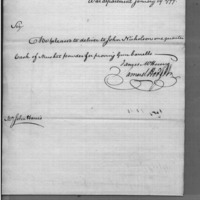 War department January 19 1799
Sir,
Please to deliver to John Nicholson one quarter
Cask of Musket powder for proving Gun barrells
James McHenry
Samuel Hodgdon
Mr John Harris